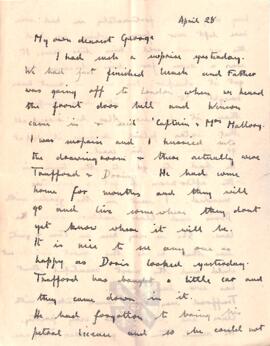 April 28
My own dearest George
I had such a surprise yesterday.
We had just finished lunch and Father
was going off to London when we heard
the front door bell and
came in & said 'Captain & Mrs Mallory.
I was upstairs and I hurried into
the drawing room & there actually were
Trafford & Doris. He had come
home for months and they will
go and live somewhere they dont
yet know where it will be.
It is nice to see any one as
happy as Doris looked yesterday.
Trafford has bought a little car and
they came down in it.
He had forgotten to bring his
petrol licence and so he could not